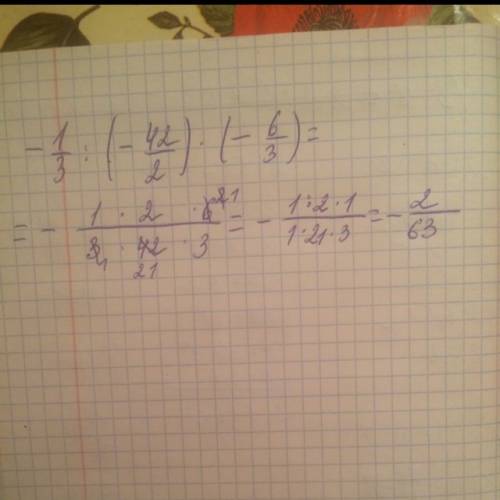 -1/3 : (-42/2) · (-6/3) =
= - (1 · 2 · 6 2 1)/(3 1 · 42 21 · 3) = - (1 · 2 · 1)/(1 · 21 · 3) = - 2/63